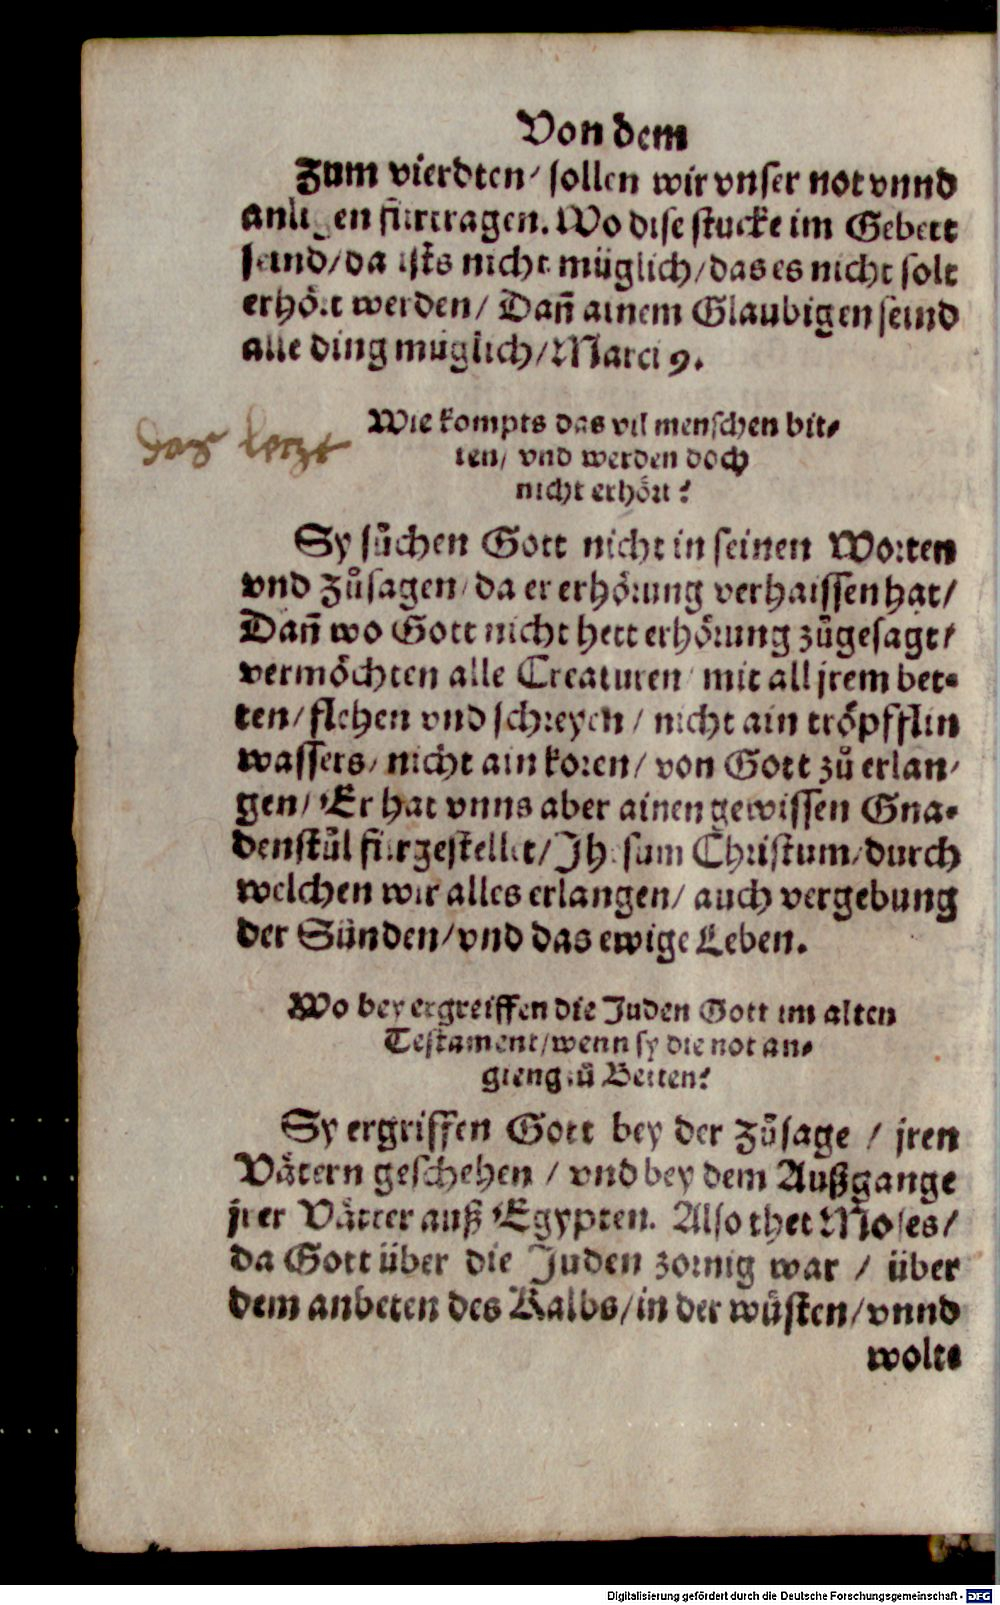 Von dem
Zum vierdten/ sollen wir vnser not vnnd
anligen fürtragen. Wo dise stucke im Gebett
seind/ da ists nicht müglich/ das es nicht solt
erhört werden/ Dañ ainem Glaubigen seind
alle ding müglich/ Marci 9.
Wie kompts das vil menschen bit⸗
ten/ vnd werden doch
nicht erhört?
das letzt
Sy sůchen Gott nicht in seinen Worten
vnd zůsagen/ da er erhörung verhaissen hat/
Dañ wo Gott nicht hett erhörung zůgesagt/
vermöchten alle Creaturen/ mit all jrem bet⸗
ten/ flehen vnd schreyen/ nicht ain tröpfflin
wassers/ nicht ain koren/ von Gott zů erlan⸗
gen/ Er hat vnns aber ainen gewissen Gna⸗
denstůl fürgestellet/ Jhesum Christum/ durch
welchen wir alles erlangen/ auch vergebung
der Sünden/ vnd das ewige Leben.
Wo bey ergreiffen die Juden Gott im alten
Testament/ wenn sy die not an⸗
gieng zů Betten?
Sy ergriffen Gott bey der zůsage / jren
Vätern geschehen / vnd bey dem Außgange
jrer Vätter auß Egypten. Also thet Moses/
da Gott über die Juden zornig war / über
dem anbeten des Kalbs/ in der wüsten/ vnnd
wolte
Digitalisierung gefördert durch die Deutsche Forschungsgemeinschaft - DFG